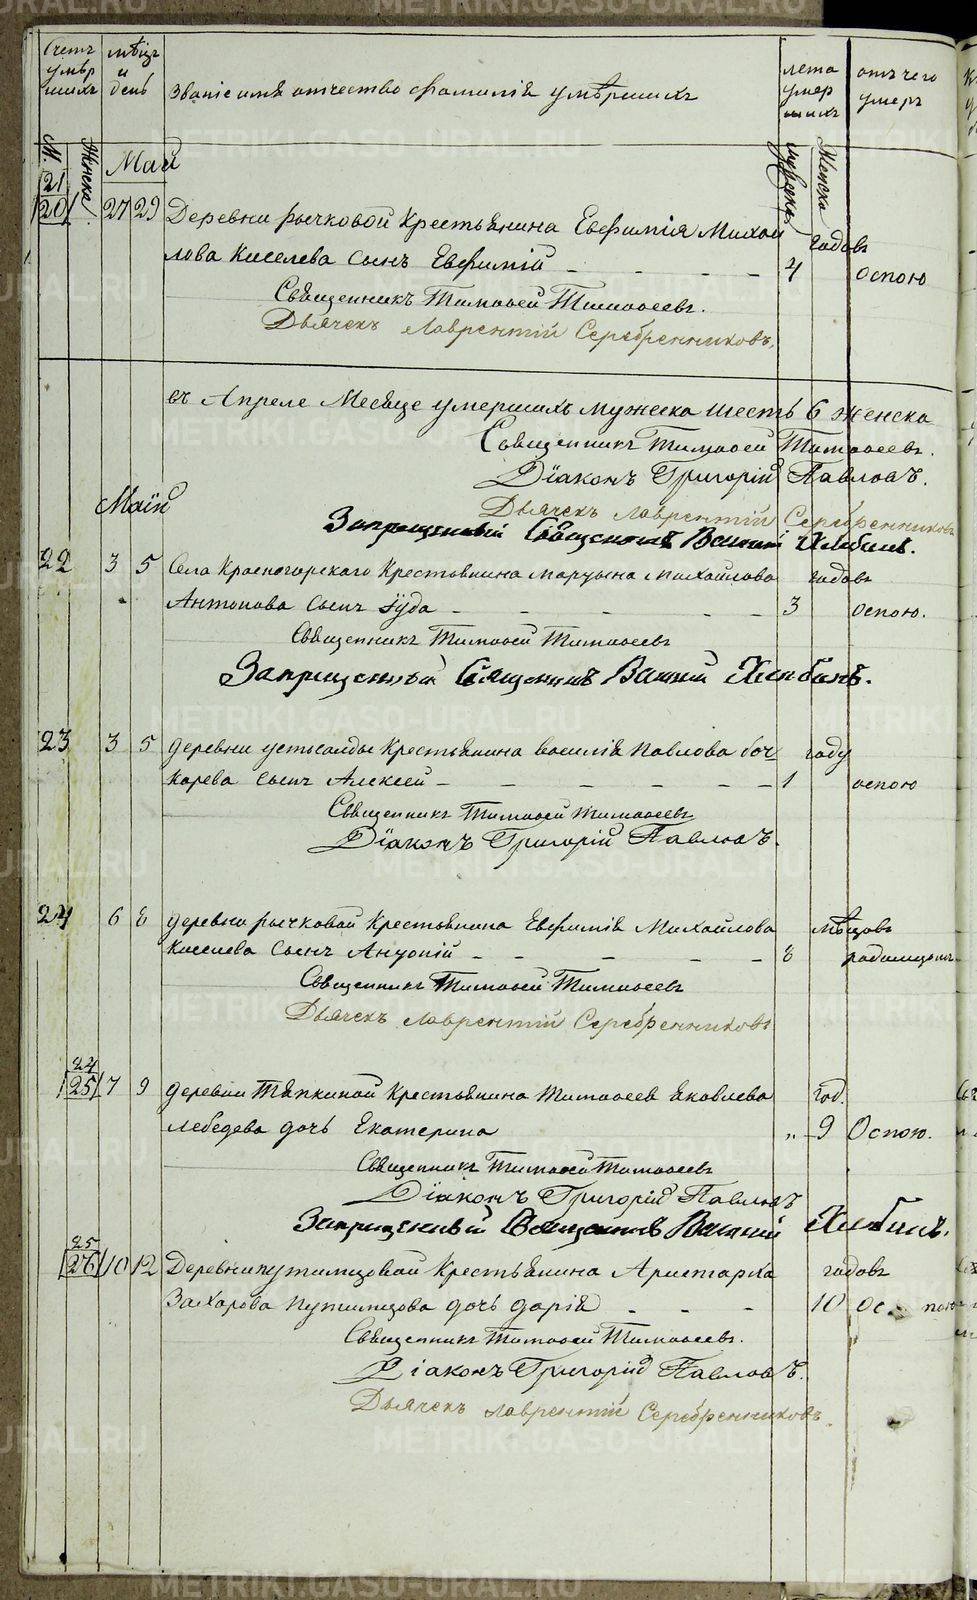 Счетъ умѣр шихъ
мѣцъ и день
Званіе имя отчество фамилія умѣршихъ
лета умер шихъ
отъ чего умеръ
М. Женска
Май
Мужска Женска
21
20 27 29 Деревни рычковой Крестьянина Евфимія Михаи
годовъ
лова Киселева сынъ Евфимій 4 оспою
Священникъ Тимофей Тимофеевъ.
Дьячекъ Лаврентій Серебренниковъ.
въ Апреле Месяце умершихъ мужеска шесть 6 женска
Священникъ Тимофей Тимофеевъ.
Діаконъ Григорій Павловъ.
Дьячекъ Лаврентій Серебренниковъ
Маій
Запрещенный Священникъ
22 3 5 Села Красногорскаго Крестьянина Михайлова годовъ
Антонова сынъ Іуда 3 оспою.
Священникъ Тимофей Тимофеевъ
Запрещенный Священникъ
23 3 5 деревни устьсалды Крестьянина василія Павлова боч годъ
карева сынъ Алексей 1 оспою
Священникъ Тимофей Тимофеевъ
Діаконъ Григорій Павловъ.
24 6 8 деревни рычковой Крестьянина Евфимія Михайлова мѣцовъ
Киселева сынъ Антоній 8 родимцомъ
Священникъ Тимофей Тимофеевъ
Дьячекъ Лаврентій Серебренниковъ
24
25 7 9 деревни Тяпкиной Крестьянина Тимофея Яковлева год.
Лебедева дочь Екатерина " 9 Оспою.
Священникъ Тимофей Тимофеевъ
Діаконъ Григорій Павловъ
Запрещенный Священникъ
25
26 10 12 Деревни путимцовой Крестьянина Аристарха годовъ
Захарова Путимцова дочь дарія 10 Ос пою
Священникъ Тимофей Тимофеевъ.
Діаконъ Григорій Павловъ.
Дьячекъ Лаврентій Серебренниковъ.
METRIKI.GASO-URAL.RU